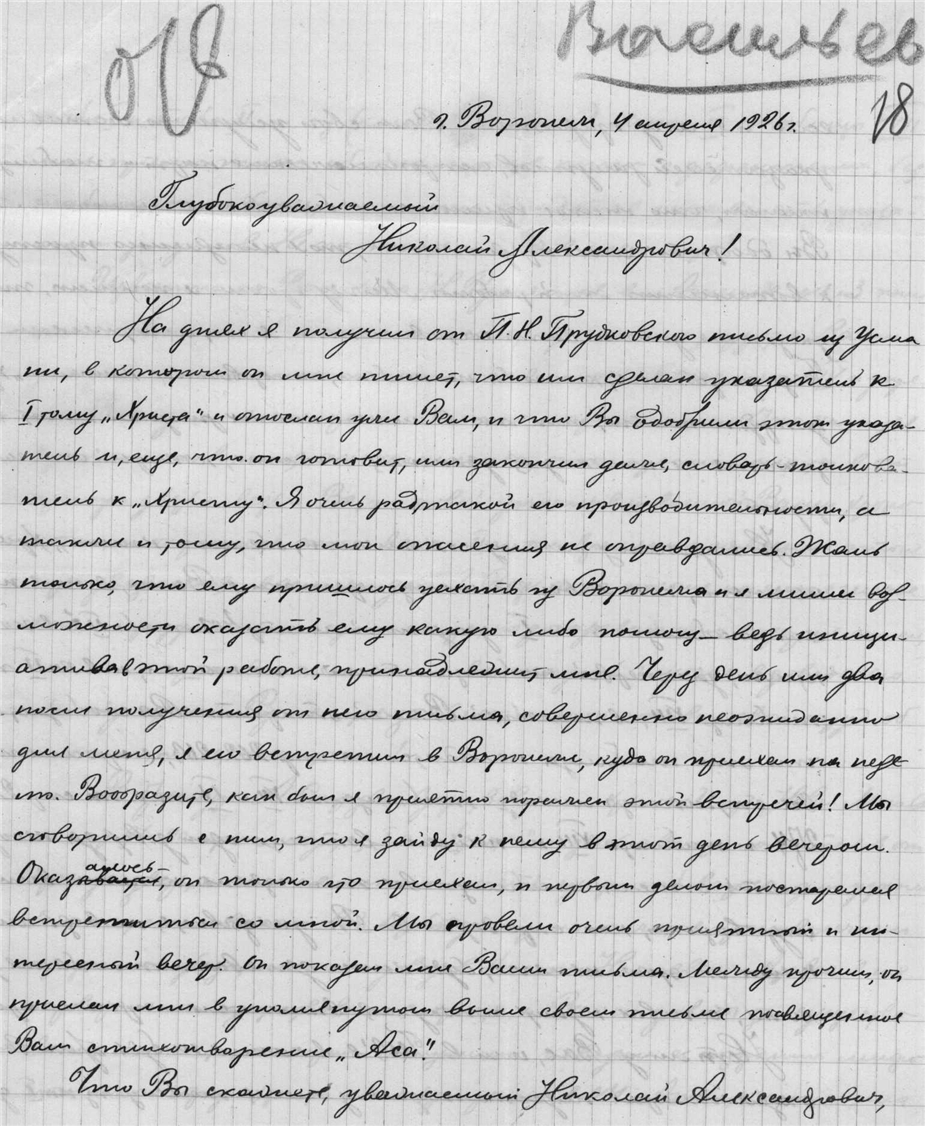 Васильев
18
г. Воронеж, 4 апреля 1926 г.
Глубокоуважаемый
Николай Александрович!
На днях я получил от П.Н. Прудковского письмо из Усма
ни, в котором он мне пишет, что им сделан указатель к
I тому „Христа“ и отослан уже Вам, и что Вы одобрили этот указа-
тель и, еще, что он готовит, или закончил даже, словарь-толкова-
тель к „Христу“. Я очень рад такой его производительности, а
также и тому, что мои опасения не оправдались. Жаль
только, что ему пришлось уехать из Воронежа и я лишен воз-
можности оказать ему какую либо помощь – ведь иници-
атива в этой работе, принадлежит, мне. Через день или два
после получения от него письма, совершенно неожиданно
для меня, я его встретил в Воронеже, куда он приехал на неде-
лю. Вообразите, как был я приятно поражен этой встречей! Мы
сговорились с ним, что я зайду к нему в этот день вечером.
Оказалось, он только что приехал, и первым делом постарался
встретиться со мной. Мы провели очень приятный и ин-
тересный вечер. Он показал мне Ваши письма. Между прочим, он
прислал мне в упомянутом выше своем письме посвященное
Вам стихотворение „Аса“.
Что Вы скажете, уважаемый Николай Александрович,